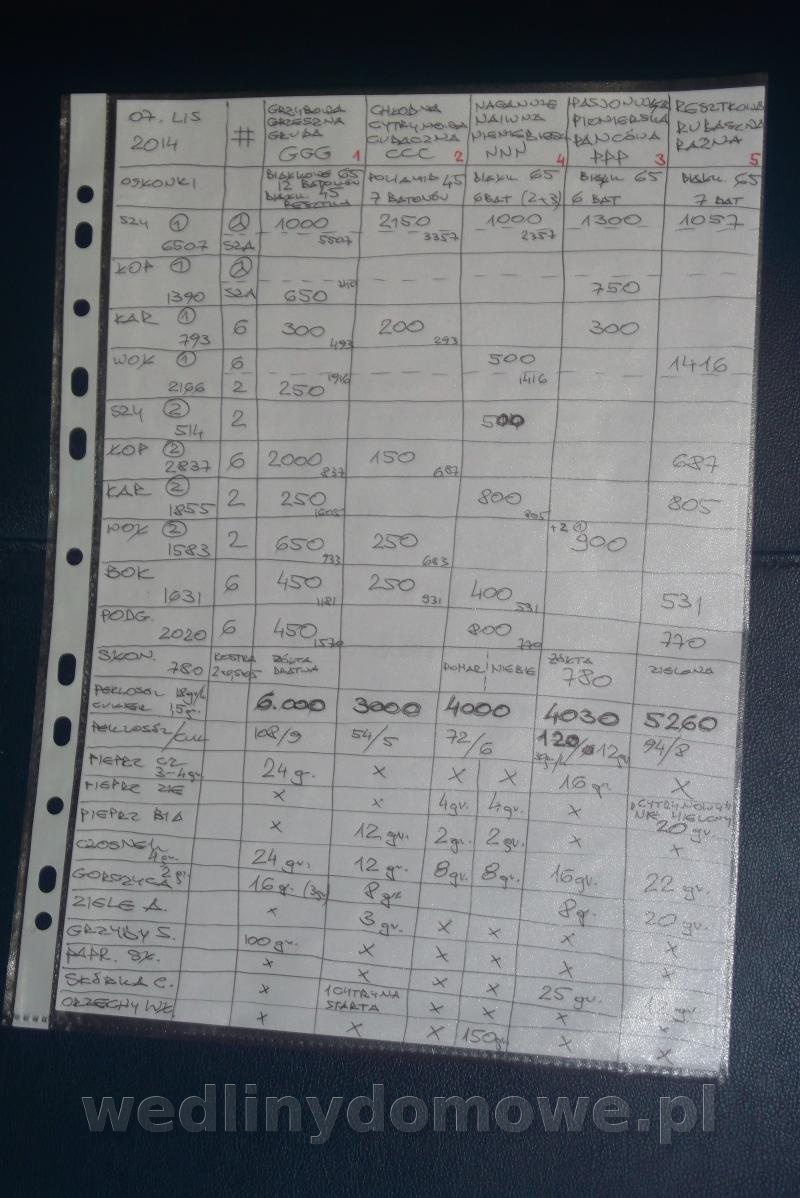 07. LIS
2014
#
GRZYBOWA
GRZESZNA
GRUBA
GGG 1
CHŁODNA
CCC 2
NAIWNA
NNN 4
PIONIERSKA
PANCÓWA
PPP 3
RESZTKOWA
RUBASZNA
RAZNA 5
OSŁONKI
BIAŁKOWE 65
12 BATONÓW
BIAŁK. 45
RESZTKA
POLIAMID 45
7 BATONÓW
BIAŁK. 65
6 BAT (2×3)
BIAŁK 65
6 BAT
BIAŁK. 65
7 BAT
SZY ① 6507
② SZA
1000 5507
2150 3357
1000 2357
1300
1057
ŁOP ① 1390
② SZA
650
750
KAR ① 793
6
300 493
200 293
300
WOŁ ① 2166
6
2
250 1916
500 1416
1416
SZY ② 514
2
500
ŁOP ② 2837
6
2000 837
150 687
687
KAR ② 1855
2
250 1605
800 805
805
WOŁ ② 1583
2
650 933
250 683
+2 ①
900
BOK 1631
6
450 1181
250 931
400 531
531
PODG. 2020
6
450 1570
800 770
770
SŁON. 780
KOSTKA
ŻÓŁTA
BRATWA
POMAR NIEBIE
ŻÓŁTA
780
ZIELONA
PEKLOSÓL 18gr/k
CUKIER 1,5g.
6.000
3000
4000
4030
5260
PEKLOSÓL/CUK
108/9
54/5
72/6
120/12g
94/8
PIEPRZ CZ
3-4gr.
24 g.
×
×
×
16 gr.
×
PIEPRZ ZIE
×
×
4gr.
4gr.
×
CYTRYNOWY
NIE MIELONY
20 gr.
PIEPRZ BIA
×
12 gr.
2gr.
2gr.
×
×
CZOSNEK
4gr.
24 gr.
12 gr.
8gr.
8gr.
16gr.
22 gr.
GORCZYCA 2gr.
16 g. (3gr)
8gr.
8g.
20 gr.
ZIELE A.
×
3 gr.
×
×
×
×
GRZYBY S.
100 gr.
×
×
×
×
×
PAPR. SŁ.
×
×
×
×
25 gr.
SKÓRKA C.
×
1 CYTRYNA
STARTA
×
×
×
×
ORZECHY WŁ.
×
×
×
150gr
×
×
wedlinydomowe.pl